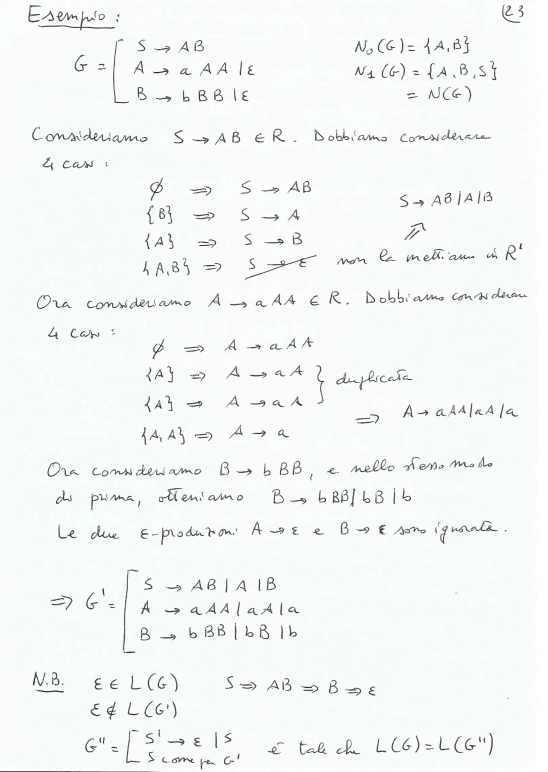 Esempio: (23
G = [ S → AB N₀(G) = {A,B}
A → a AA | ε N₁(G) = {A, B, S}
B → b BB | ε = N(G)
Consideriamo S → AB ∈ R. Dobbiamo considerare
4 casi:
∅ ⟹ S → AB
{B} ⟹ S → A S → AB|A|B
{A} ⟹ S → B ⇗
{A,B} ⟹ S → ε non la mettiamo in R'
Ora consideriamo A → aAA ∈ R. Dobbiamo considerare
4 casi:
∅ ⟹ A → aAA
{A} ⟹ A → aA } duplicata
{A} ⟹ A → aA
{A,A} ⟹ A → a ⟹ A → aAA|aA|a
Ora consideriamo B → bBB, e nello stesso modo
di prima, otteniamo B → bBB|bB|b
Le due ε-produzioni A → ε e B → ε sono ignorate.
⟹ G' = [ S → AB | A | B
A → aAA | aA | a
B → bBB | bB | b
N.B. ε ∈ L(G) S ⟹ AB ⟹ B ⟹ ε
ε ∉ L(G')
G'' = [ S' → ε | S
S come per G' è tale che L(G) = L(G'')